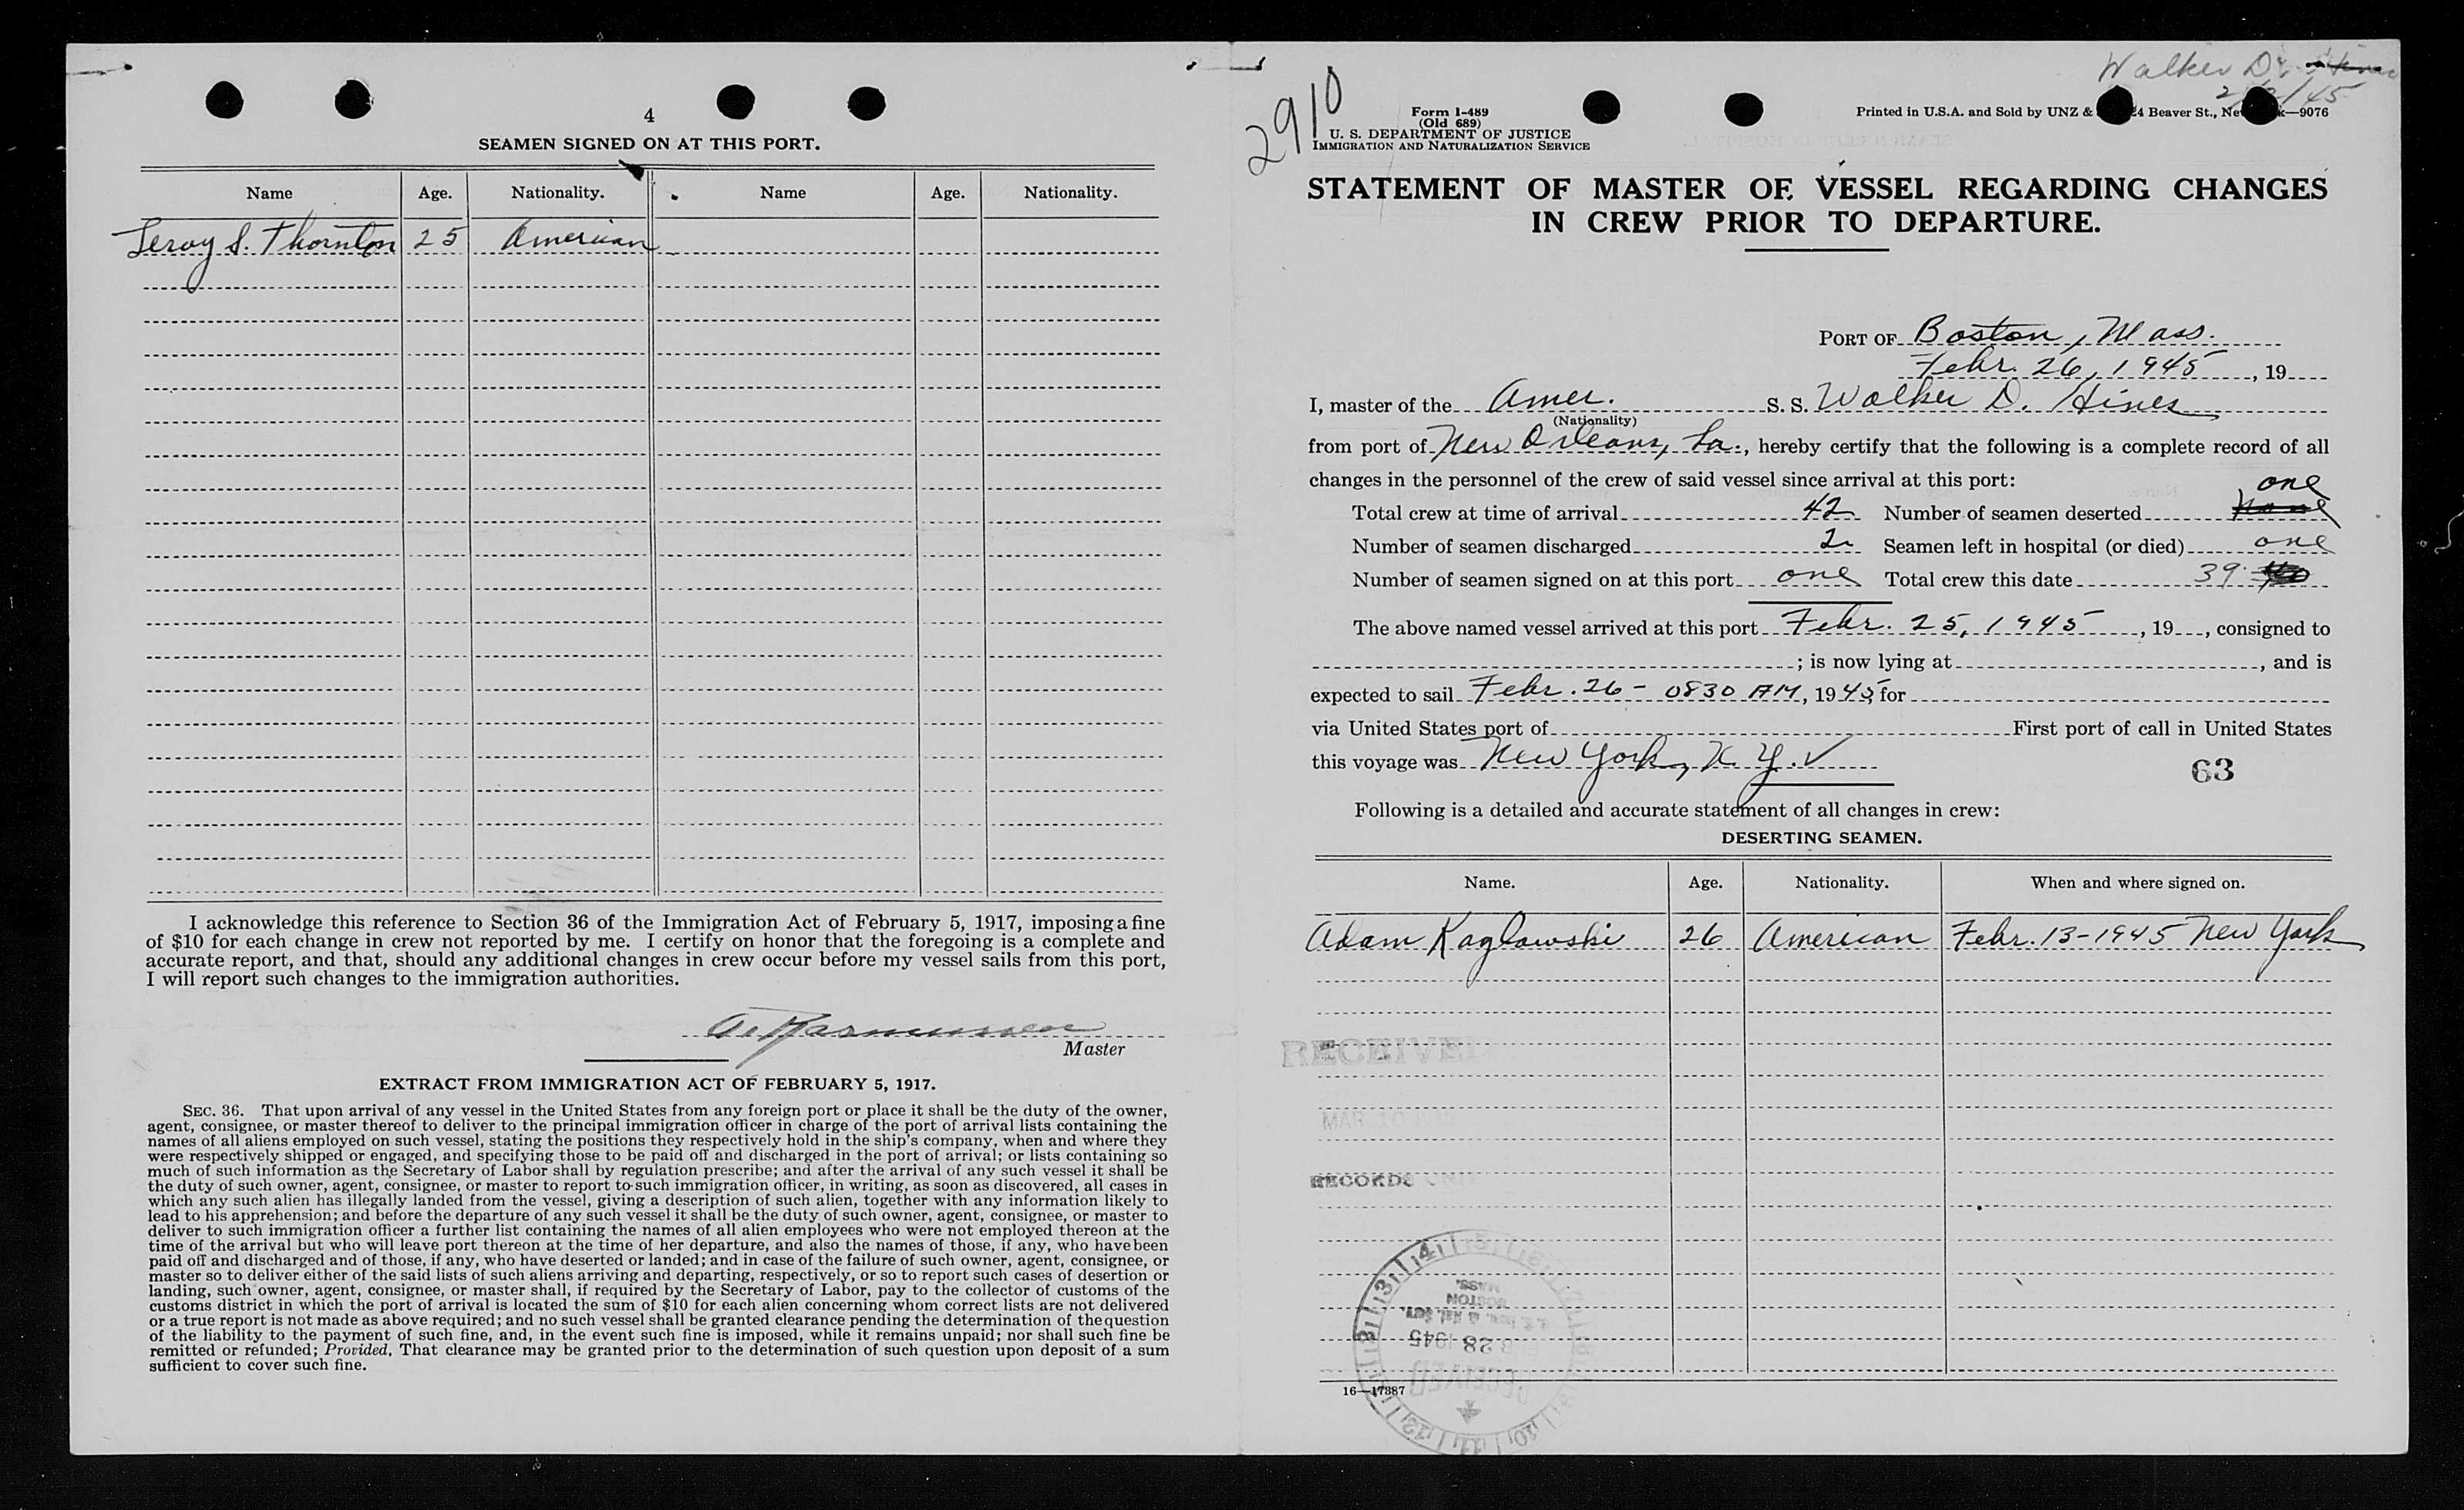 4
SEAMEN SIGNED ON AT THIS PORT.
Name Age. Nationality. Name Age. Nationality.
Leroy S. Thornton 25 American
I acknowledge this reference to Section 36 of the Immigration Act of February 5, 1917, imposing a fine
of $10 for each change in crew not reported by me. I certify on honor that the foregoing is a complete and
accurate report, and that, should any additional changes in crew occur before my vessel sails from this port,
I will report such changes to the immigration authorities.
A. Rasmussen
Master
EXTRACT FROM IMMIGRATION ACT OF FEBRUARY 5, 1917.
SEC. 36. That upon arrival of any vessel in the United States from any foreign port or place it shall be the duty of the owner,
agent, consignee, or master thereof to deliver to the principal immigration officer in charge of the port of arrival lists containing the
names of all aliens employed on such vessel, stating the positions they respectively hold in the ship's company, when and where they
were respectively shipped or engaged, and specifying those to be paid off and discharged in the port of arrival; or lists containing so
much of such information as the Secretary of Labor shall by regulation prescribe; and after the arrival of any such vessel it shall be
the duty of such owner, agent, consignee, or master to report to such immigration officer, in writing, as soon as discovered, all cases in
which any such alien has illegally landed from the vessel, giving a description of such alien, together with any information likely to
lead to his apprehension; and before the departure of any such vessel it shall be the duty of such owner, agent, consignee, or master to
deliver to such immigration officer a further list containing the names of all alien employees who were not employed thereon at the
time of the arrival but who will leave port thereon at the time of her departure, and also the names of those, if any, who have been
paid off and discharged and of those, if any, who have deserted or landed; and in case of the failure of such owner, agent, consignee, or
master so to deliver either of the said lists of such aliens arriving and departing, respectively, or so to report such cases of desertion or
landing, such owner, agent, consignee, or master shall, if required by the Secretary of Labor, pay to the collector of customs of the
customs district in which the port of arrival is located the sum of $10 for each alien concerning whom correct lists are not delivered
or a true report is not made as above required; and no such vessel shall be granted clearance pending the determination of the question
of the liability to the payment of such fine, and, in the event such fine is imposed, while it remains unpaid; nor shall such fine be
remitted or refunded; Provided, That clearance may be granted prior to the determination of such question upon deposit of a sum
sufficient to cover such fine.
Walker D. Hines
2910
Form I-489
(Old 689)
U. S. DEPARTMENT OF JUSTICE
IMMIGRATION AND NATURALIZATION SERVICE
Printed in U.S.A. and Sold by UNZ & 24 Beaver St., New k—9076
STATEMENT OF MASTER OF VESSEL REGARDING CHANGES
IN CREW PRIOR TO DEPARTURE.
PORT OF Boston, Mass.
Febr. 26, 1945, 19
I, master of the Amer. S. S. Walker D. Hines
(Nationality)
from port of New Orleans, La., hereby certify that the following is a complete record of all
changes in the personnel of the crew of said vessel since arrival at this port:
one
Total crew at time of arrival 42 Number of seamen deserted none
Number of seamen discharged 2 Seamen left in hospital (or died) one
Number of seamen signed on at this port one Total crew this date 39 40
The above named vessel arrived at this port Febr. 25, 1945, 19, consigned to
; is now lying at , and is
expected to sail Febr. 26 - 0830 AM, 1945, for
via United States port of First port of call in United States
this voyage was New York, N.Y. ✓
63
Following is a detailed and accurate statement of all changes in crew:
DESERTING SEAMEN.
Name. Age. Nationality. When and where signed on.
Adam Kaglowski 26 American Febr. 13-1945 New York
RECEIVED
MAR 10
RECORDS UNIT
MASS.
BOSTON
28 1945
RECEIVED
16—17387